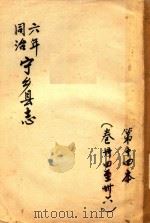 第十四本
(卷卅四至卅六)
六年
同治
宁乡县志